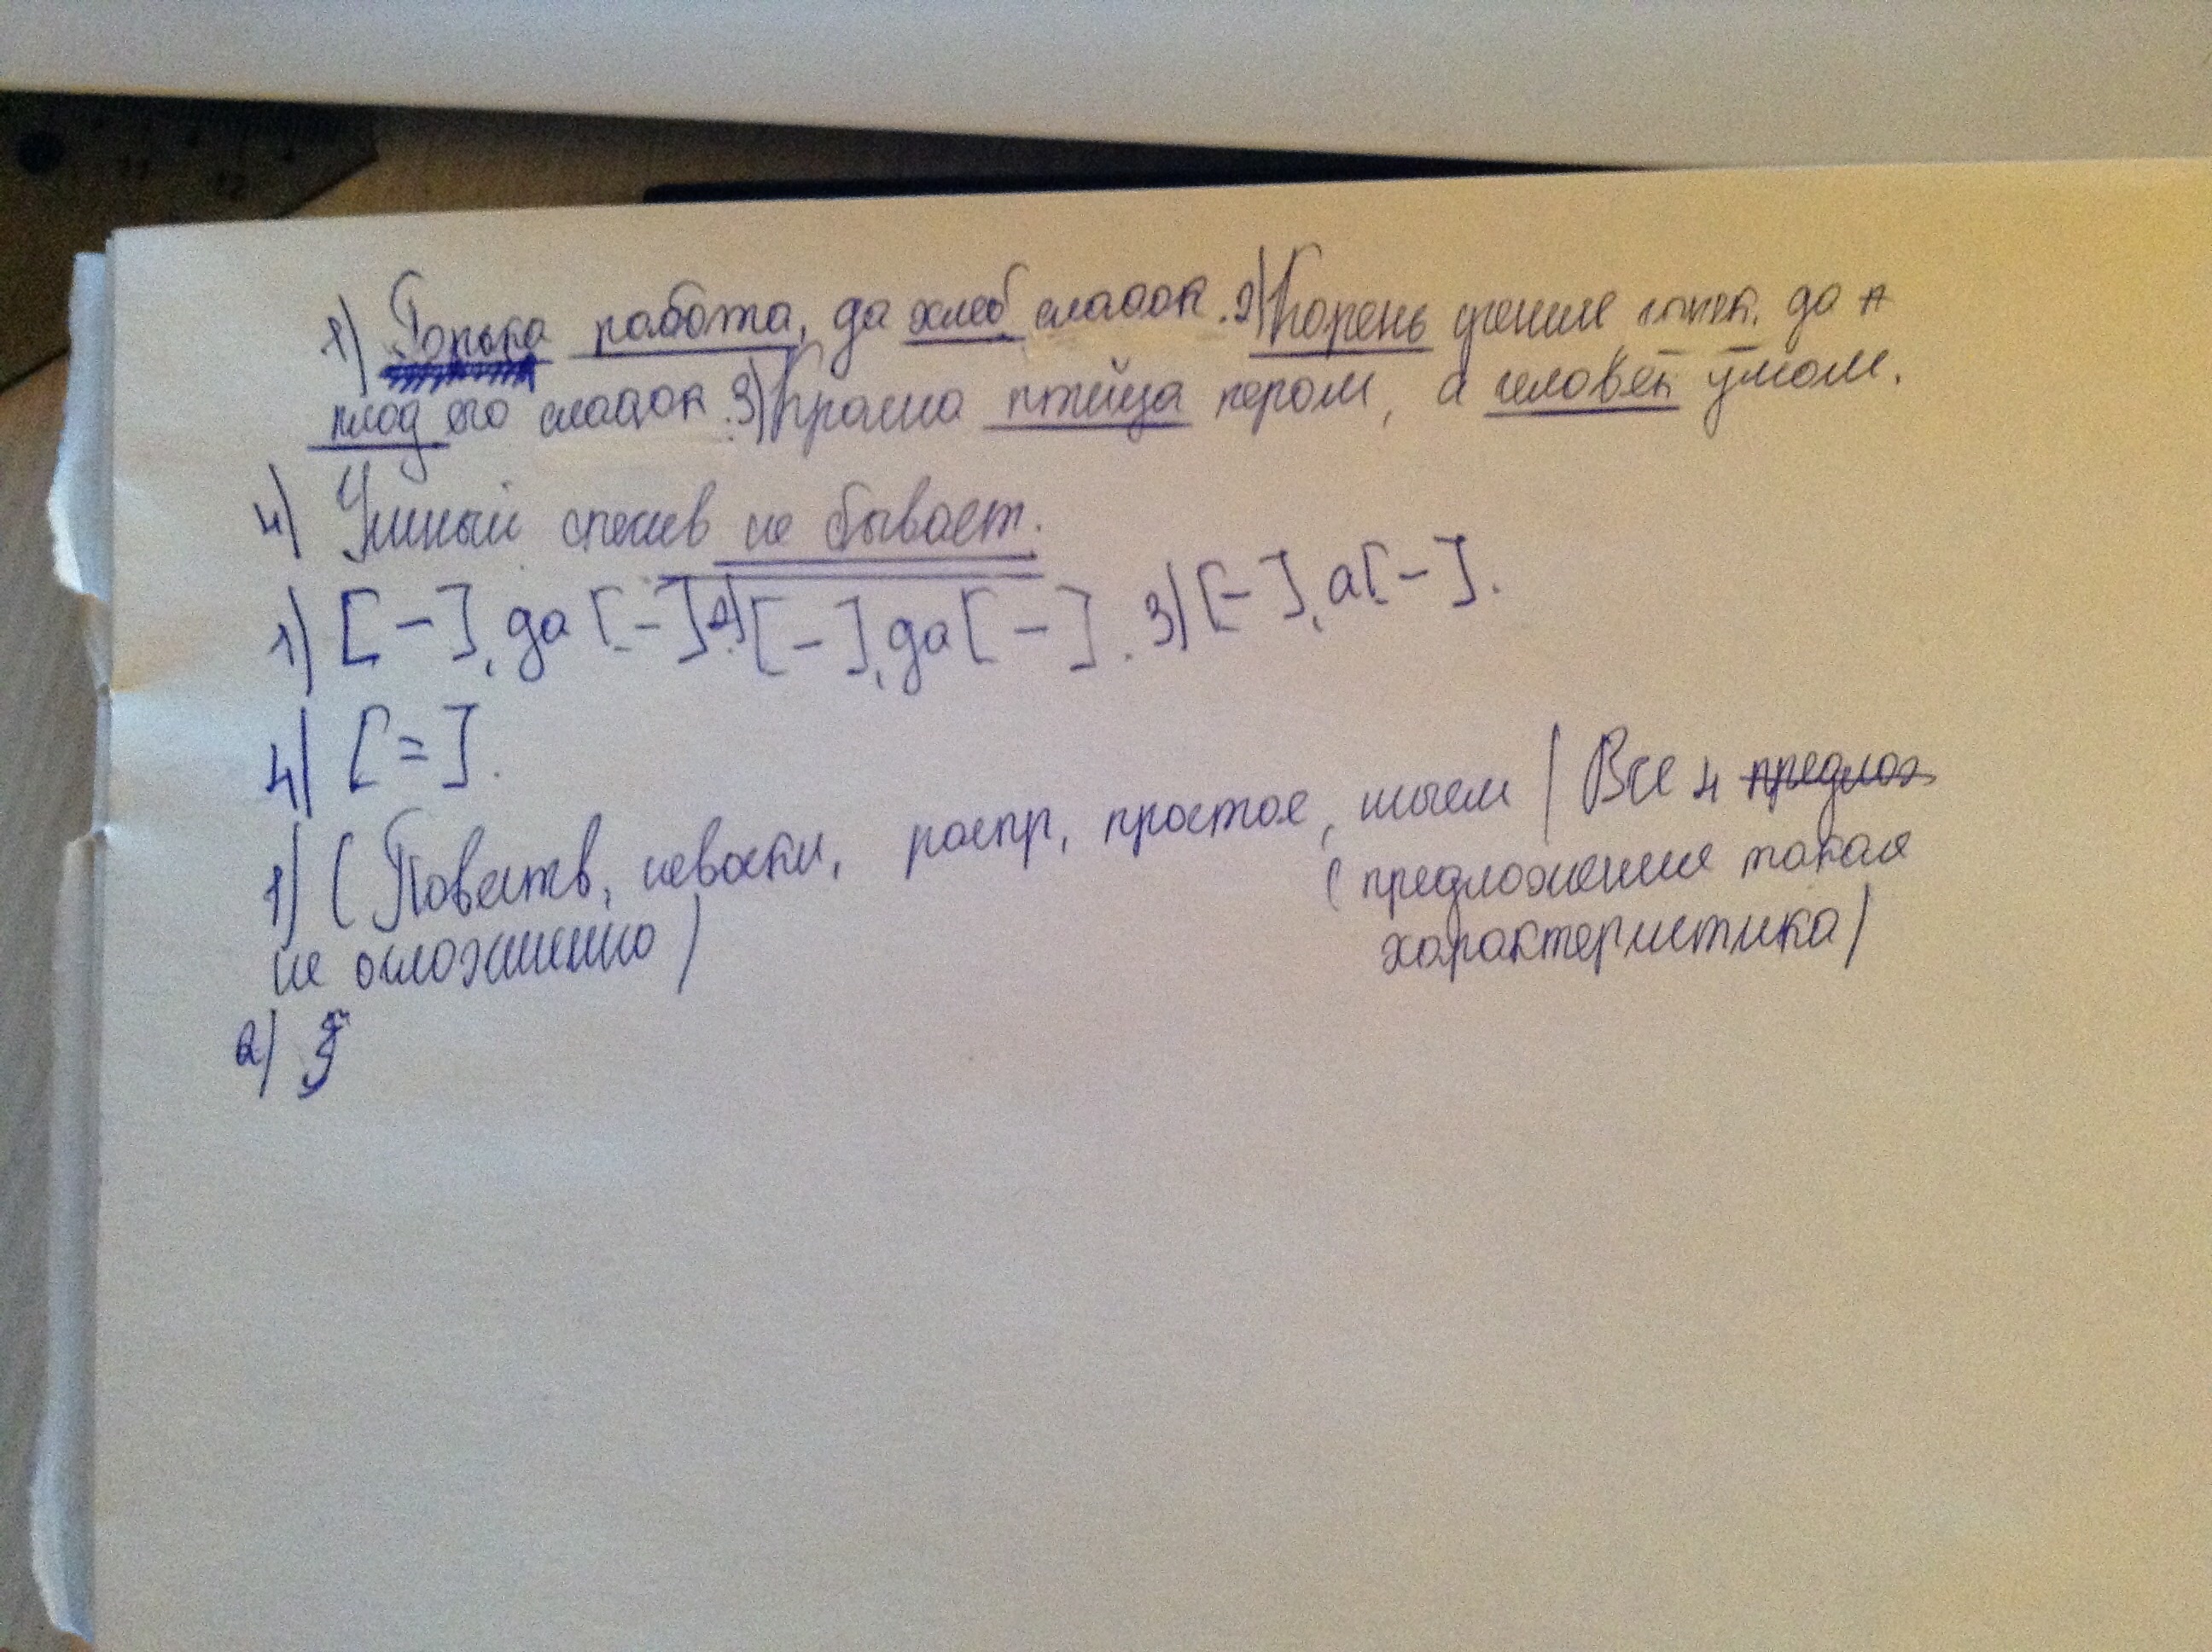 1) Горька работа, да хлеб сладок. 2) Корень учение горек, да
плод его сладок. 3) Краша птица пером, а человек умом.
4) Умный спесив не бывает.
1) [-], да [-]. 2) [-], да [-]. 3) [-], а [-].
4) [=].
1) (Повеств, невоскл, распр, простое, ) Все 4 предлож
не осложненно) (предложения такая
характеристика)
2)